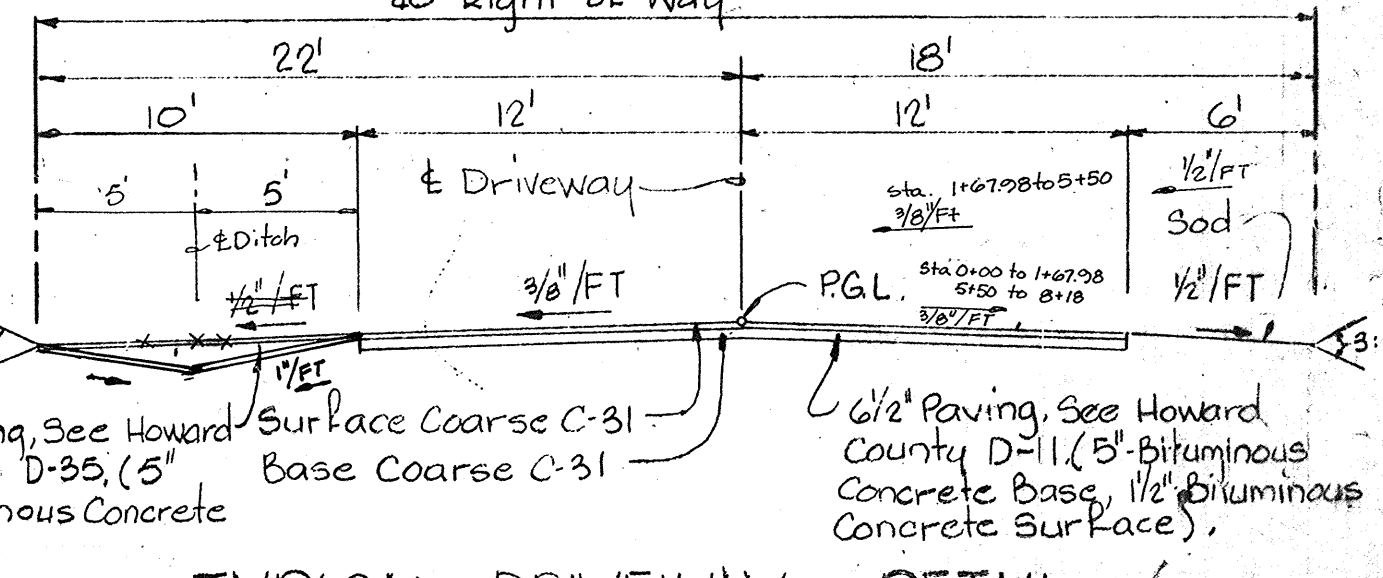 40' Right of Way
22'
18'
10'
12'
12'
6'
5'
5'
℄ Driveway
Sta. 1+67.98 to 5+50
3/8"/Ft
1/2"/FT
Sod
℄ Ditch
1/2"/FT
3/8"/FT
P.G.L.
Sta 0+00 to 1+67.98
5+50 to 8+18
3/8"/FT
1/2"/FT
3:
1"/FT
See Howard
D-35, (5"
Concrete
Surface Coarse C-31
Base Coarse C-31
6 1/2" Paving, See Howard
County D-11. (5"-Bituminous
Concrete Base, 1 1/2" Bituminous
Concrete Surface).